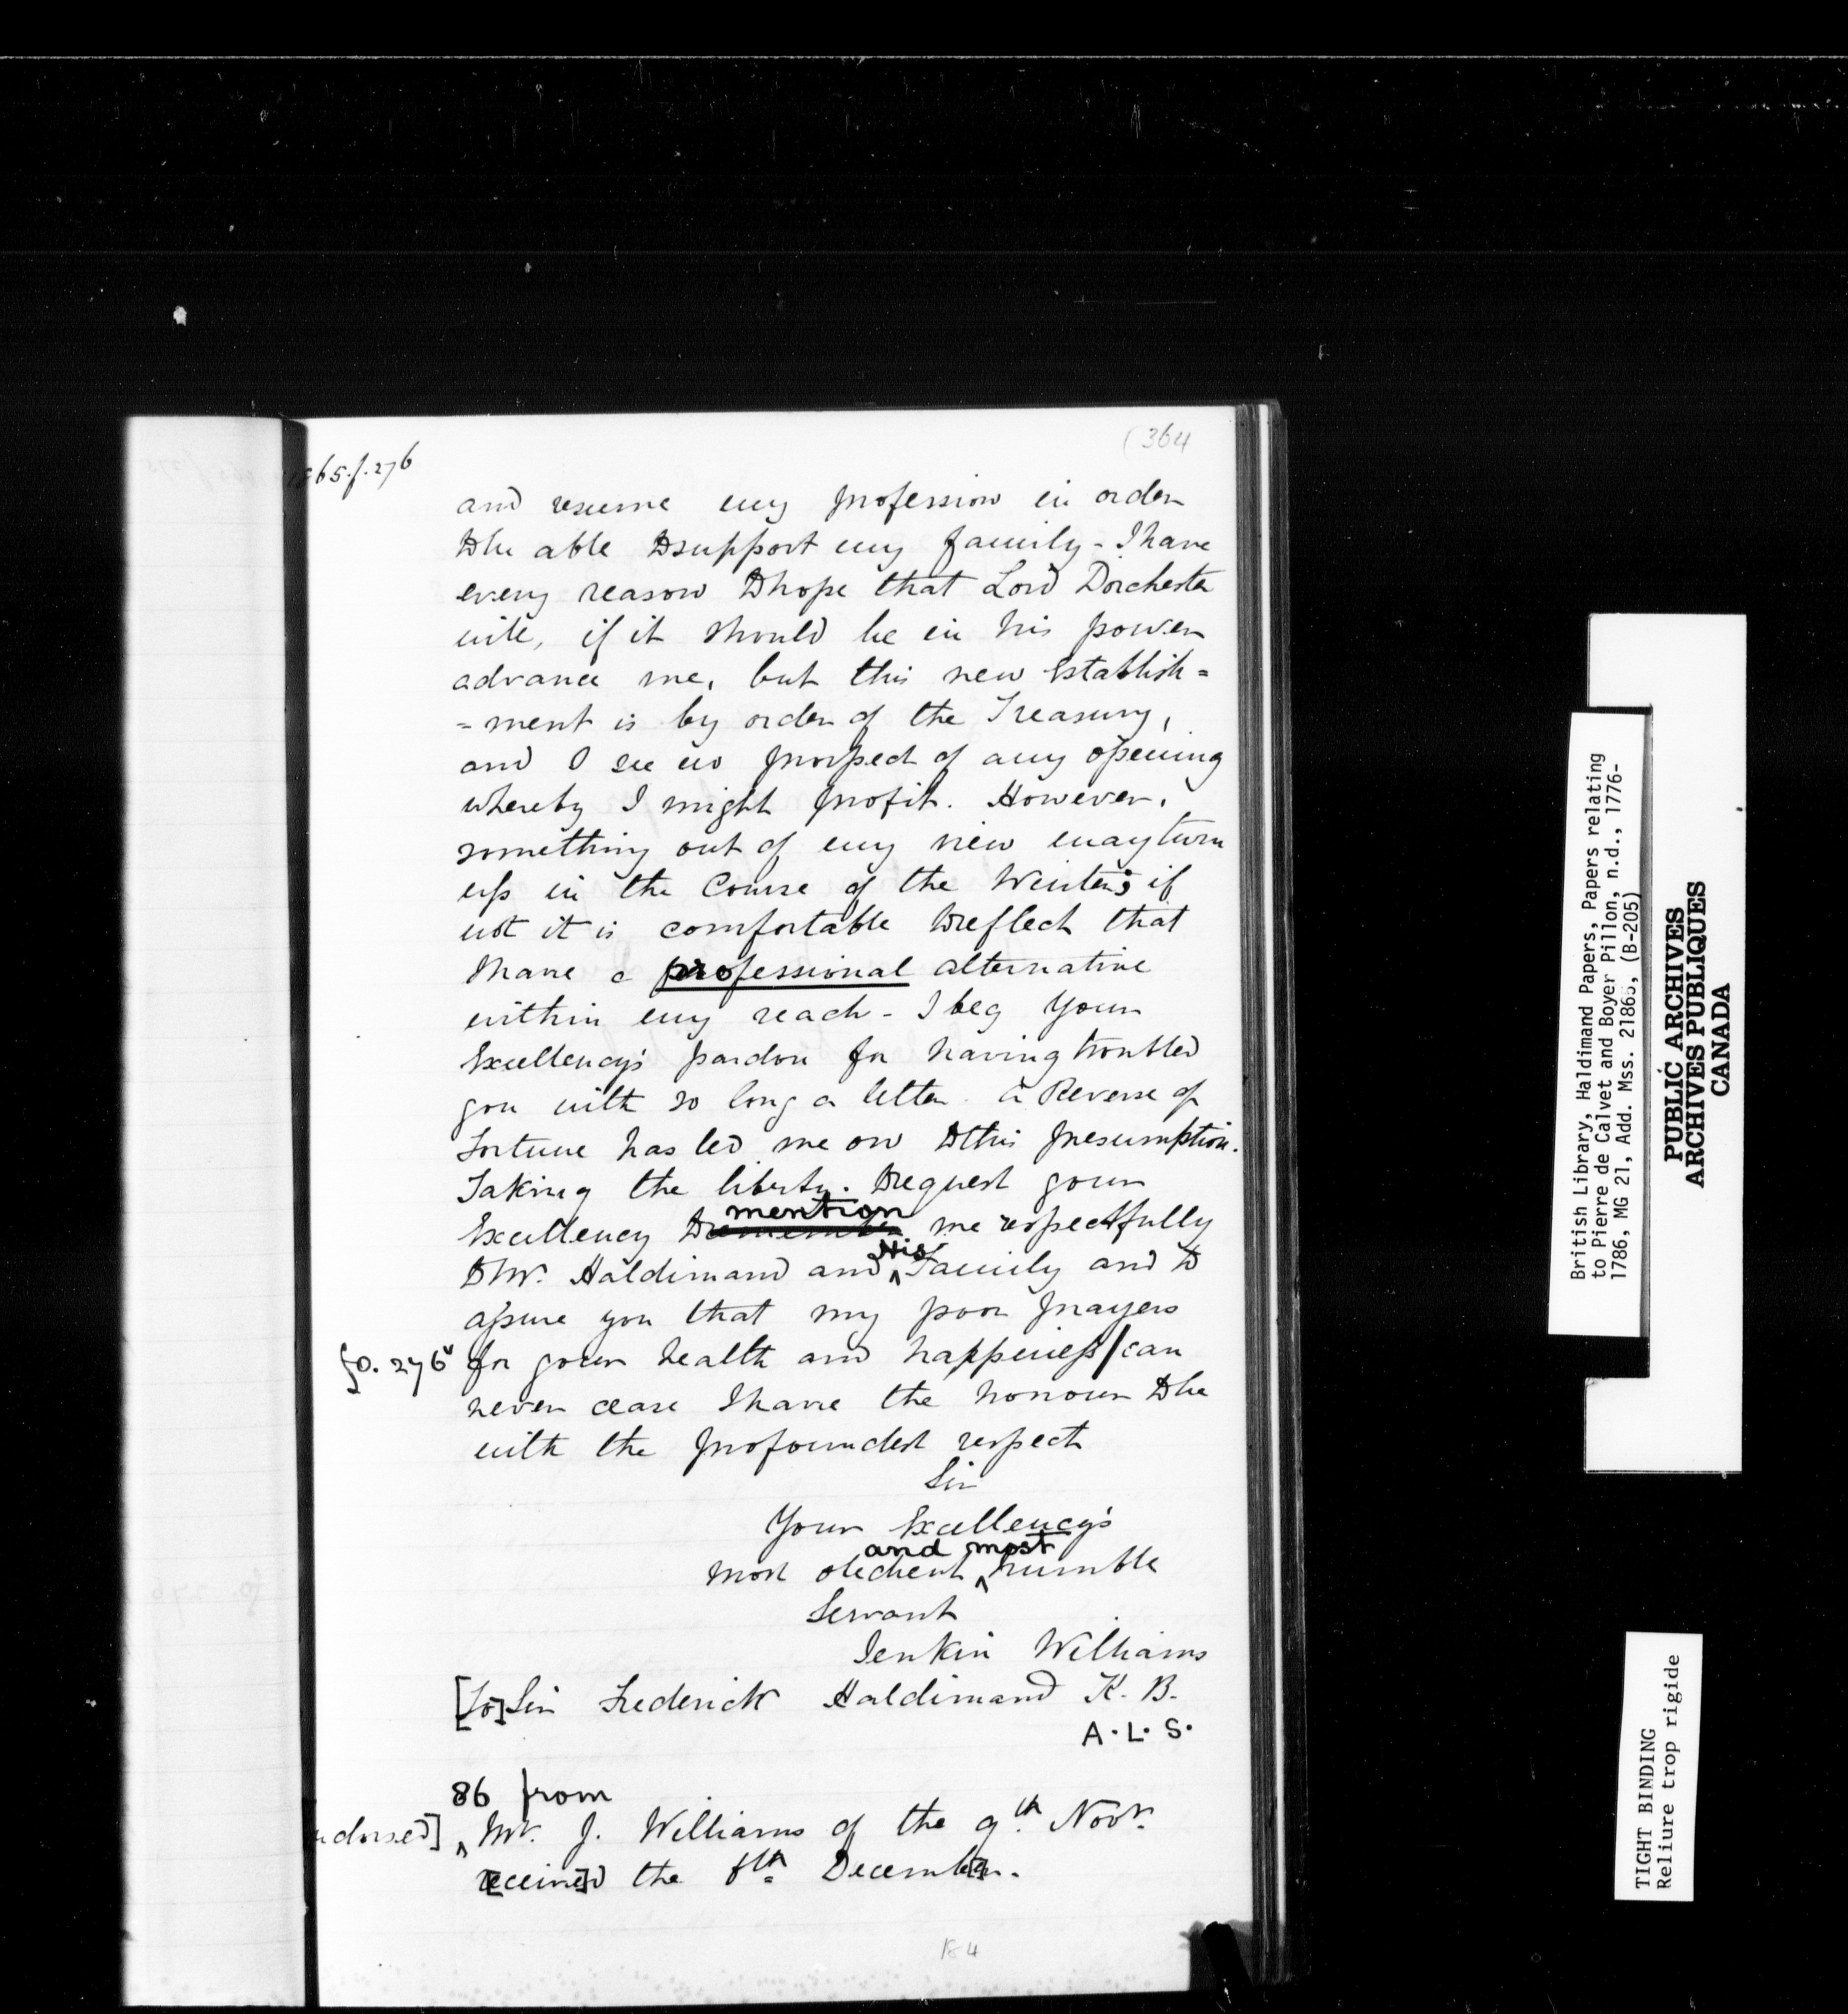 (364
1865.f.276
and resume my profession in order
to be able to support my family - I have
every reason to hope that Lord Dorchester
will, if it should be in his power
advance me, but this new Establish=
=ment is by order of the Treasury,
and I see no prospect of any opening
whereby I might profit. However,
something out of my view may turn
up in the Course of the Winter; if
not it is comfortable to reflect that
I have a professional alternative
within my reach - I beg Your
Excellency's pardon for having troubled
you with so long a letter. a Reverse of
Fortune has led me on to this presumption.
Taking the liberty. to request your
mention
Excellency to remember me respectfully
His
to Mr. Haldimand and ^ Family and to
assure you that my poor prayers
fo. 276v for your health and happiness/can
never cease I have the honour to be
with the profoundest respect
Sir
Your Excellency's
and most
most obedient ^ humble
Servant
Jenkin Williams
[To] Sir Frederick Haldimand K. B.
A. L. S.
86 from
ndorsed] ^ Mr. J. Williams of the 9th Novr.
[r]eceive[d] the 8th December.
184
British Library, Haldimand Papers, Papers relating
to Pierre de Calvet and Boyer Pillon, n.d., 1776-
1786, MG 21, Add. Mss. 21865, (B-205)
PUBLIC ARCHIVES
ARCHIVES PUBLIQUES
CANADA
TIGHT BINDING
Reliure trop rigide